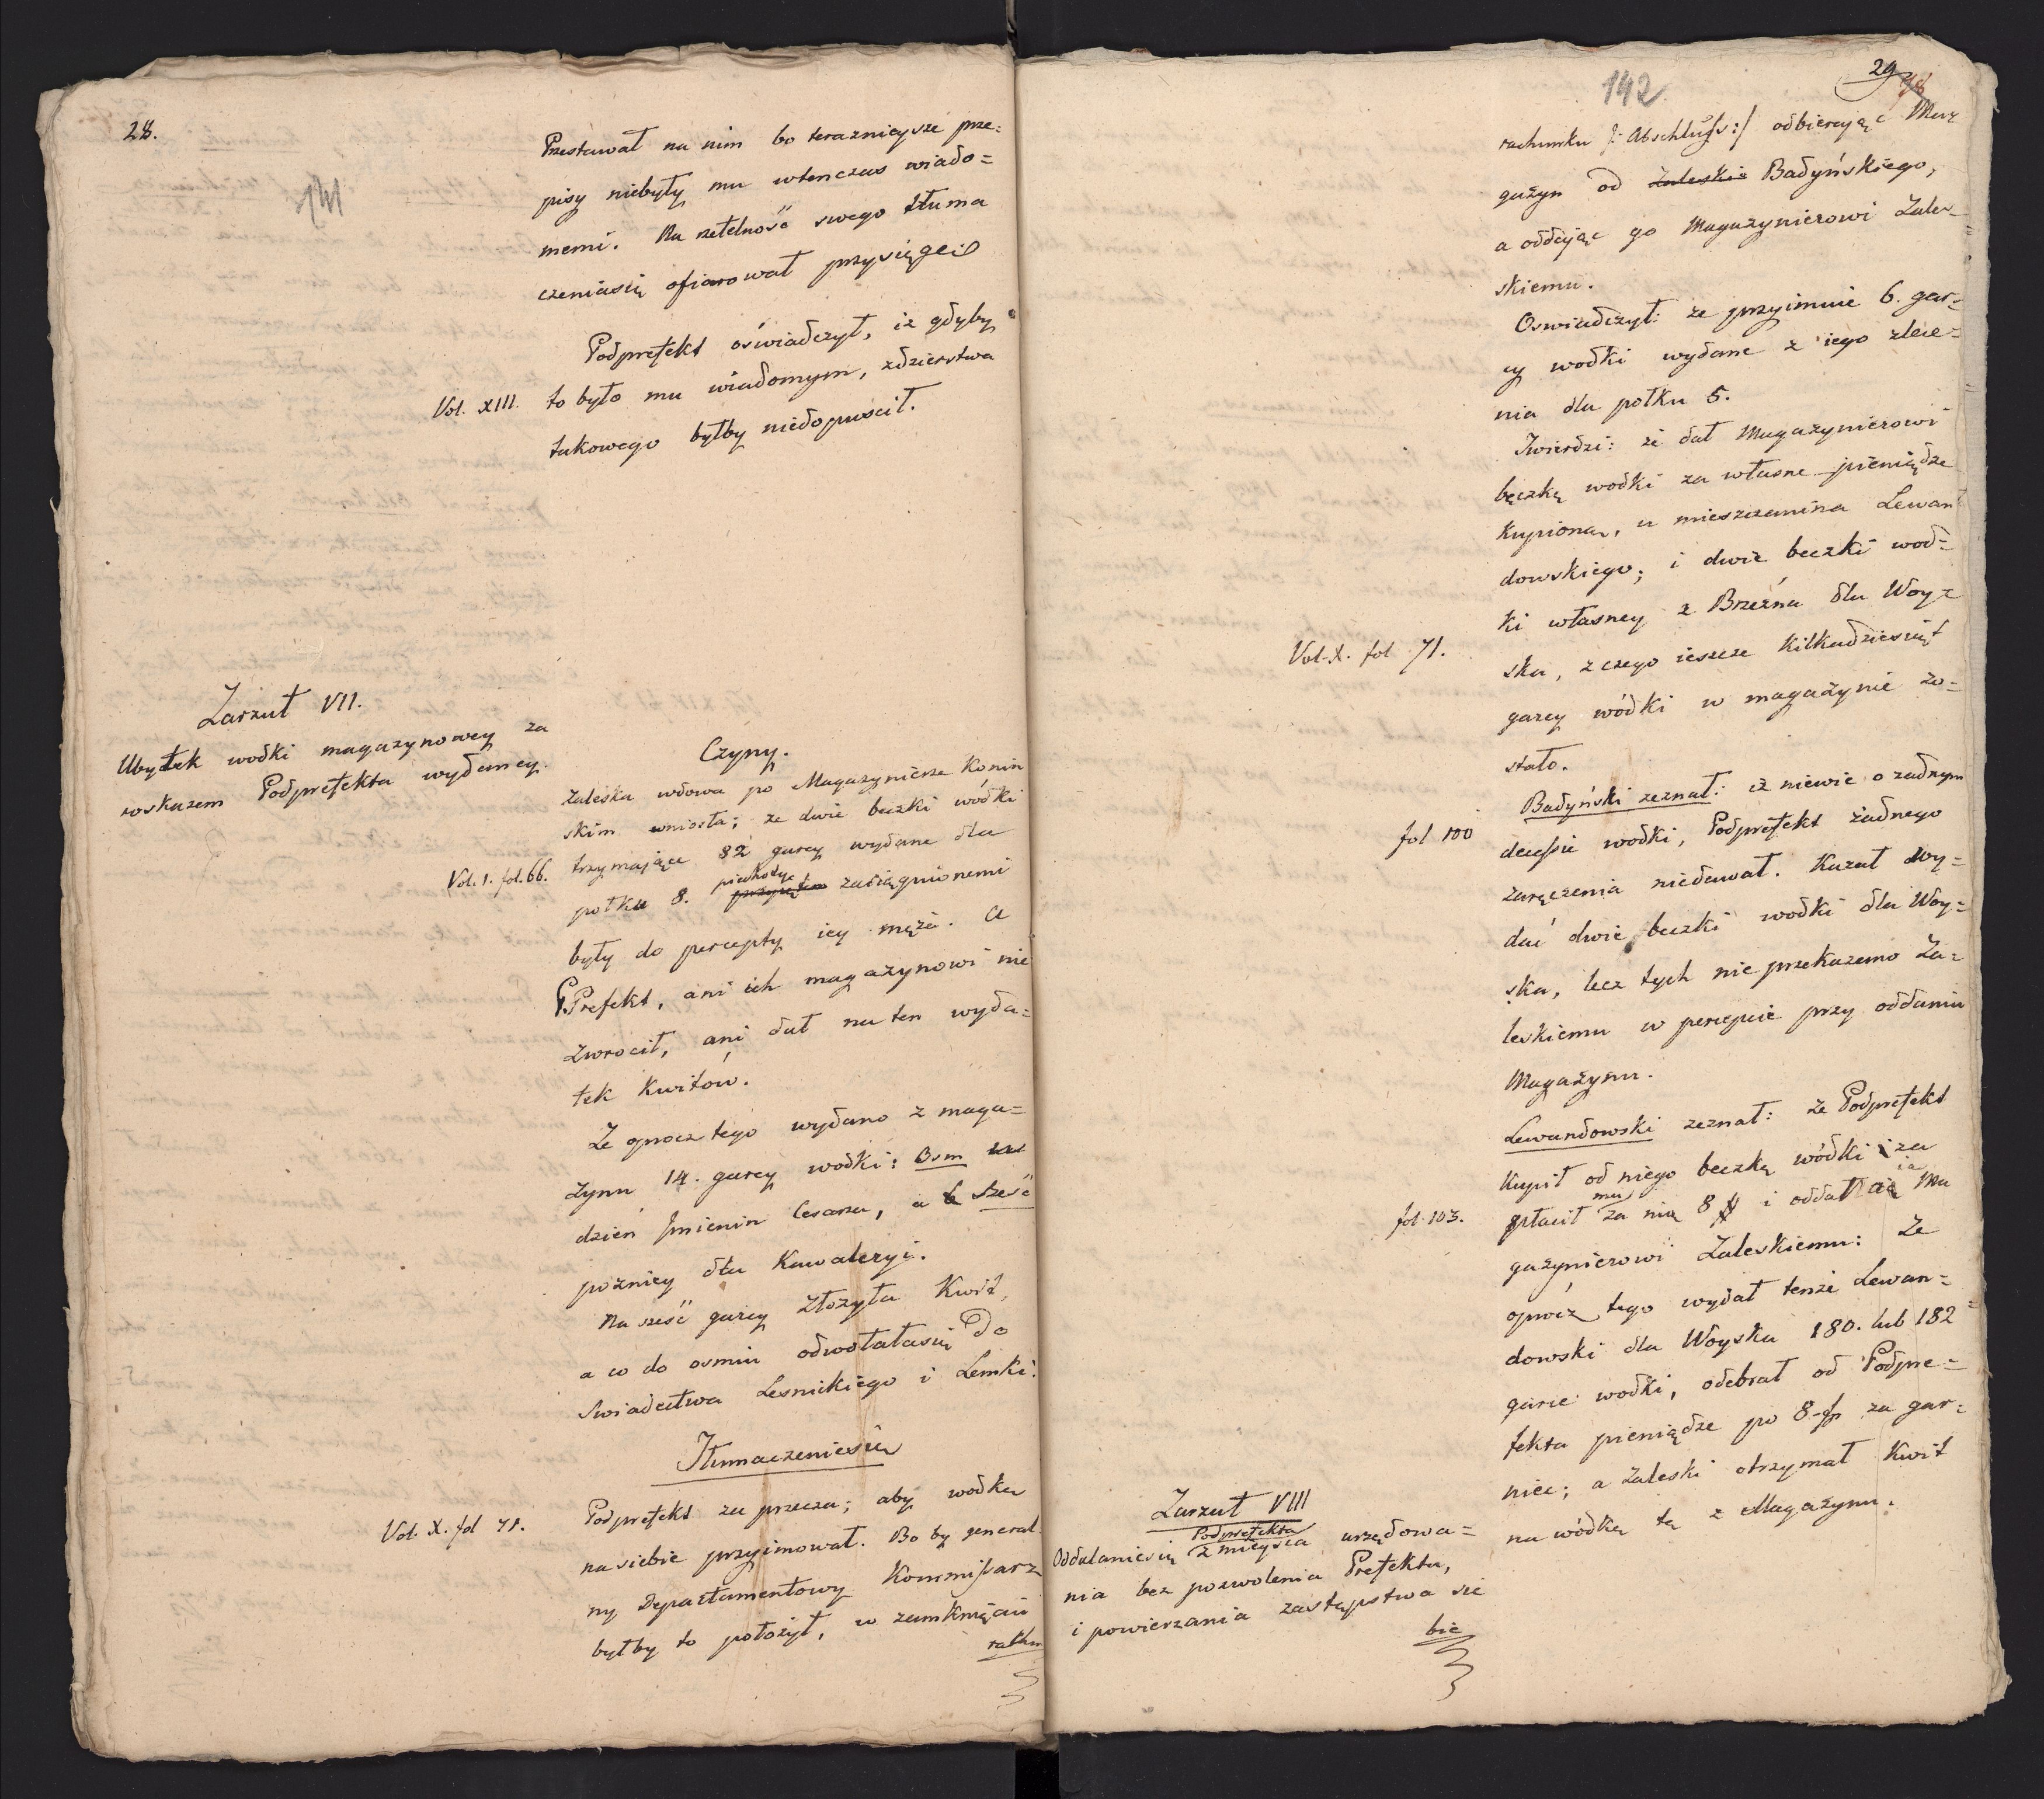 28.
141
Przestawał na nim bo teraznieysze prze=
pisy niebyły mu wtenczas wiado=
memi. Na rzetelność swego tłuma
czeniasię ofiarował przysięgę
Podprefekt oświadczył, iż gdyby
Vol. XIII.
to było mu wiadomym, zdzierstwa
takowego byłby niedopuscił.
Zarzut VII.
Ubytek wodki magazynowey za
roskazem Podprefekta wydaney.
Czyny.
Zaleska wdowa po Magazynierze Konin
skim wniosła; że dwie beczki wódki
Vol. I. fol. 66.
trzymające 82 garcy wydane dla
połku 8. piechoty zaciągnionemi
były do percepty iey męża. a
P.Prefekt, ani ich magazynowi nie
zwrocił, ani dał na ten wyda=
tek kwitów.
Że oprocz tego wydano z maga=
zynu 14. garcy wodki: Osm na
dzień Jmienin Cesarza, a sześć
pozniey dla Kawaleryi.
Na sześć garcy złożyła Kwit,
a co do osmiu odwołałasię Do
Swiadectwa Lesnickiego i Lemki.
Tłumaczeniesię
Vol. X. fol 71.
Podprefekt za przecza; aby wodkę
na siebie przyimował. Bo by general
ny Departamentowy Kommissarz
byłby to położył, w zamknięciu
rachun
142
29
rachunku /: Abschluss :/ odbieraiąc Ma
gazyn od Zaleskie Badyńskiego,
a oddaiąc go Magazynierowi Zale=
skiemu.
Oswiadczył: że przyimuie 6. gar=
cy wodki wydane z iego zlece=
nia dla połku 5.
Twierdzi: że dał Magazynierowi
beczkę wodki za własne pieniądze
Kupioną, u mieszczanina Lewan
dowskiego; i dwie beczki wod=
ki własney z Brzezna dla Woy=
Vol. X. fol 71.
ska, z czego ieszcze kilkadziesiąt
garcy wódki w magazynie zo=
stało.
Badyński zeznał: iż niewie o zadnym
fol 100
decessie wodki, Podprefekt żadnego
zaręczenia niedawał. Kazał wy=
dać dwie beczki wodki dla Woy=
ska, lecz tych nie przekazano Za=
leskiemu w percepcie przy oddaniu
Magazynu.
Lewandowski zeznał: że Podprefekt
Kupił od niego beczkę wódki i za
fol. 103.
płacił mu za nią 8 # i oddał ią Ma
gazynierowi Zaleskiemu: Że
oprócz tego wydał tenże Lewan=
dowski dla Woyska 180. lub 182
garce wodki, odebrał od Podpre=
fekta pieniądze po 8 fl. za gar=
niec; a Zaleski otrzymał Kwit
na wódkę tę z Magazynu.
Zarzut VIII
Oddalaniesię Podprefekta z mieysca urzędowa=
nia bez pozwolenia Prefekta,
i powierzania zastępstwa sie
bie